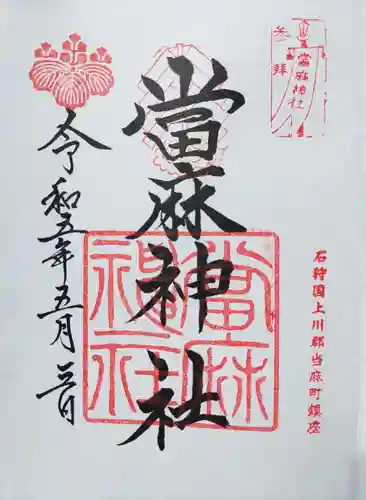 參拜
當麻神社
石狩国上川郡当麻町鎮座
當麻神社
當麻神社
令和五年五月三日